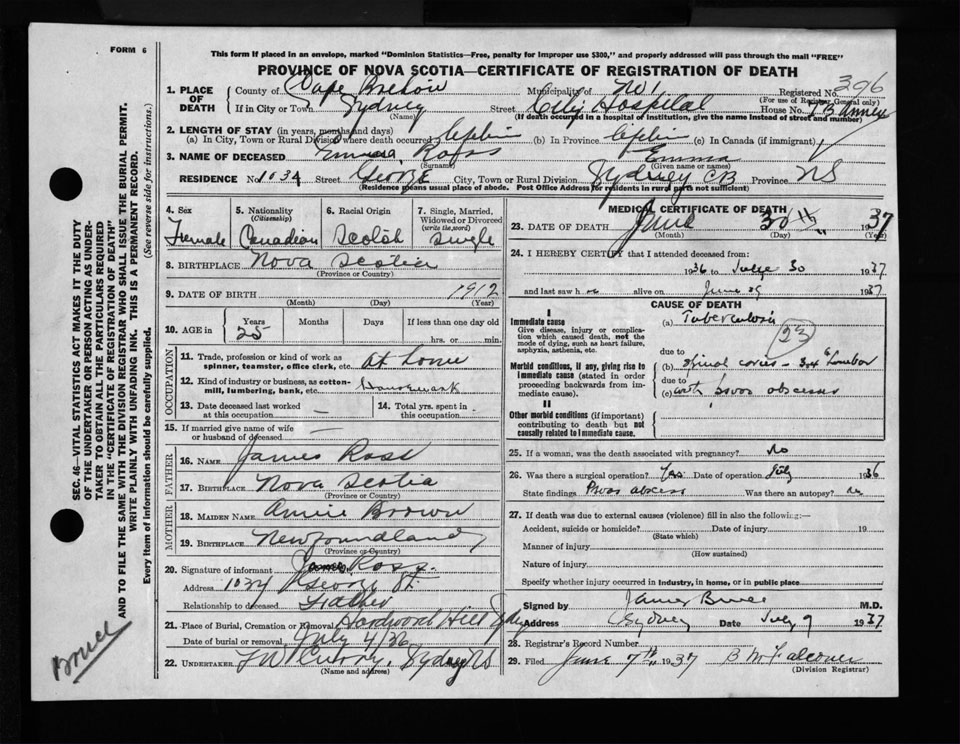 FORM 6
This form if placed in an envelope, marked "Dominion Statistics—Free, penalty for improper use $300," and properly addressed will pass through the mail "FREE"
PROVINCE OF NOVA SCOTIA—CERTIFICATE OF REGISTRATION OF DEATH
1. PLACE OF DEATH
County of Cape Breton Municipality of No 1 Registered No. 396
(For use of Registrar General only)
If in City or Town Sydney Street City Hospital House No. T B Annex
(Name) (If death occurred in a hospital or institution, give the name instead of street and number)
2. LENGTH OF STAY (in years, months and days)
(a) In City, Town or Rural Division where death occurred lifetime (b) In Province lifetime (c) In Canada (if immigrant)
3. NAME OF DECEASED Ross Emma
(Surname) (Given name or names)
RESIDENCE No. 1034 Street George City, Town or Rural Division Sydney CB Province NS
(Residence means usual place of abode. Post Office Address for residents in rural parts not sufficient)
4. Sex Female
5. Nationality (Citizenship) Canadian
6. Racial Origin Scotch
7. Single, Married, Widowed or Divorced (write the word) Single
8. BIRTHPLACE Nova Scotia
(Province or Country)
9. DATE OF BIRTH 1912
(Month) (Day) (Year)
10. AGE in Years 25 Months Days If less than one day hrs. or min.
OCCUPATION
11. Trade, profession or kind of work as spinner, teamster, office clerk, etc. At home
12. Kind of industry or business, as cotton-mill, lumbering, bank, etc. Housework
13. Date deceased last worked at this occupation —
14. Total yrs. spent in this occupation —
15. If married give name of wife or husband of deceased —
FATHER
16. Name James Ross
17. Birthplace Nova Scotia
(Province or Country)
MOTHER
18. Maiden Name Annie Brown
19. Birthplace Newfoundland
(Province or Country)
20. Signature of informant James Ross
Address 1034 George St.
Relationship to deceased Father
21. Place of Burial, Cremation or Removal Hardwood Hill Sydney
Date of burial or removal July 4/36
22. Undertaker Sydney NS
(Name and address)
MEDICAL CERTIFICATE OF DEATH
23. DATE OF DEATH June 30th 1937
(Month) (Day) (Year)
24. I HEREBY CERTIFY that I attended deceased from:
1936 to 30 1937
and last saw her alive on June 29 1937
CAUSE OF DEATH
I
Immediate cause
Give disease, injury or complication which caused death, not the mode of dying, such as heart failure, asphyxia, asthenia, etc.
(a) Tuberculosis
23
due to
Morbid conditions, if any, giving rise to immediate cause (stated in order proceeding backwards from immediate cause).
(b) Spinal caries - 3-4 Lumbar
due to
(c) with psoas abscess
II
Other morbid conditions (if important) contributing to death but not causally related to immediate cause.
25. If a woman, was the death associated with pregnancy? No
26. Was there a surgical operation? Yes Date of operation July 1936
State findings Psoas abscess Was there an autopsy? No
27. If death was due to external causes (violence) fill in also the following:—
Accident, suicide or homicide? Date of injury 19
(State which)
Manner of injury
(How sustained)
Nature of injury
Specify whether injury occurred in industry, in home, or in public place
Signed by James Bruce M.D.
Address Sydney Date July 9 1937
28. Registrar's Record Number
29. Filed June 7th 1937 B McFalconer
(Division Registrar)
SEC. 46—VITAL STATISTICS ACT MAKES IT THE DUTY
OF THE UNDERTAKER OR PERSON ACTING AS UNDER-
TAKER TO OBTAIN ALL THE PARTICULARS REQUIRED
IN THE "CERTIFICATE OF REGISTRATION OF DEATH"
AND TO FILE THE SAME WITH THE DIVISION REGISTRAR WHO SHALL ISSUE THE BURIAL PERMIT.
WRITE PLAINLY WITH UNFADING INK. THIS IS A PERMANENT RECORD.
Every item of information should be carefully supplied. (See reverse side for instructions.)
Bruce